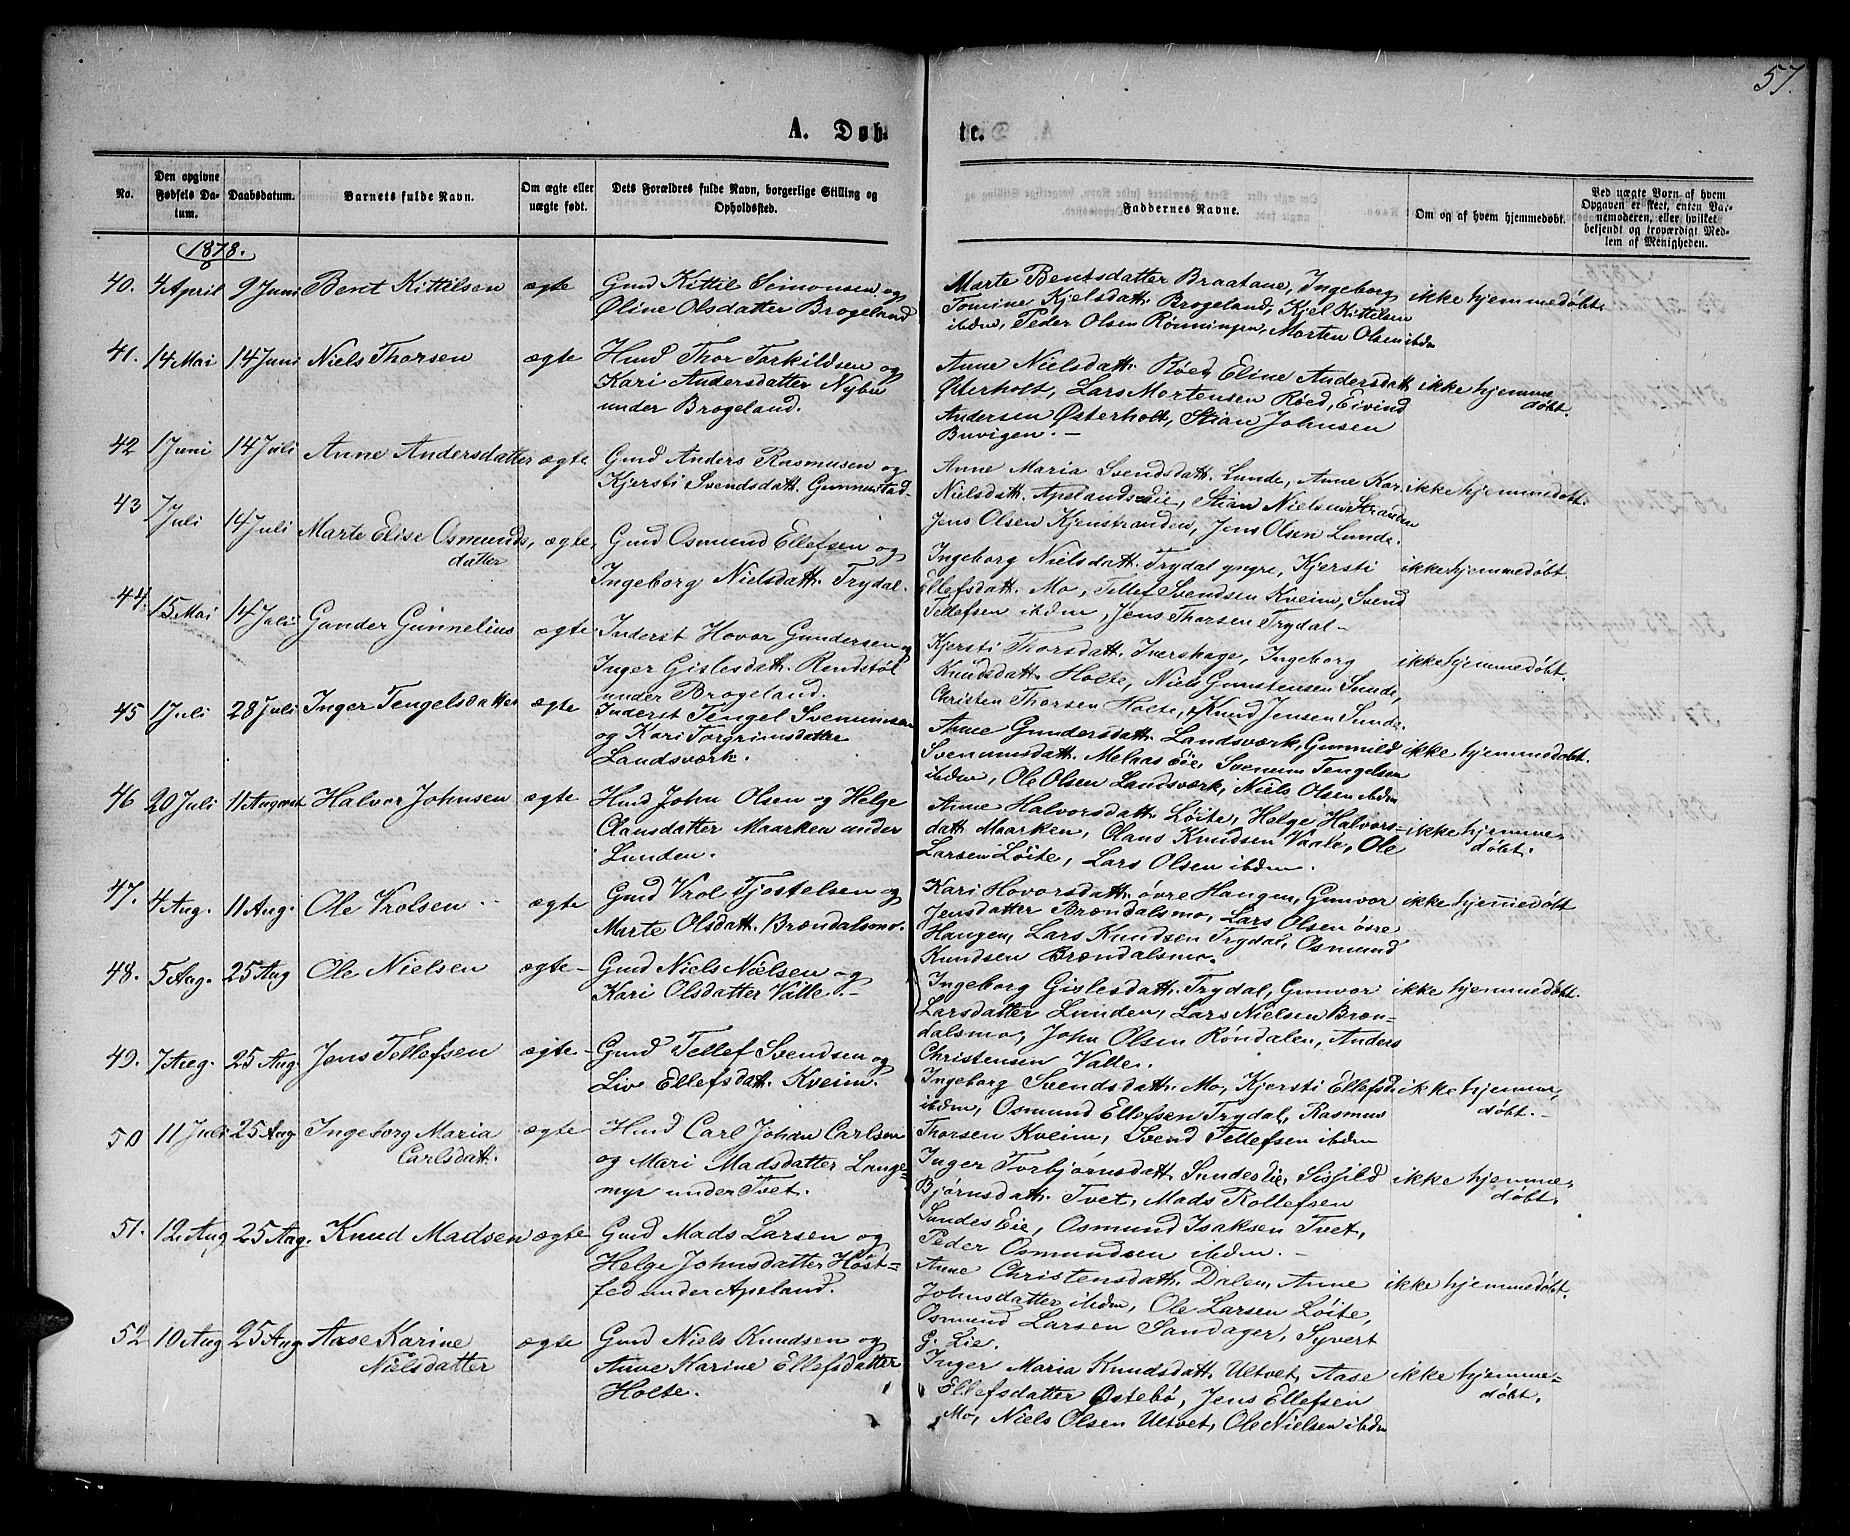 57.
A. Døb-
te.
No.
Den opgivne
Fødsels Da-
tum.
Daabsdatum.
Barnets fulde Navn.
Om ægte eller
uægte født.
Dets Forældres fulde Navn, borgerlige Stilling og
Opholdssted.
Faddernes Navne.
Om og af hvem hjemmedøbt.
Ved uægte Børn af hvem
Opgaven er skeet, enten Bar-
nemoderen, eller hvilket
bekjendt og troværdigt Med-
lem af Menigheden.
1878.
40. 4 April 9 Juni Bent Kittilsen ægte
Gmd Kittil Simonsen og
Øline Olsdatter Brogeland
Marte Bentsdatter Braatane, Ingeborg
Tomine Kjelsdatt. Brogeland, Kjel Kittilsen
ibdm, Peder Olsen Rønningen, Morten Olsen ibdm
ikke hjemmedøbt.
41. 14 Mai 14 Juni Niels Thorsen ægte
Hmd Thor Torkildsen og
Kari Andersdatter Nybu
under Brogeland.
Anne Nielsdatt. Røed, Eline Andersdatt
Østerholt, Lars Mortensen Røed, Eivind
Andersen Østerholt, Stian Johnsen
Buvigen.-
ikke hjemme
døbt.
42 1 Juni 14 Juli Anne Andersdatter ægte
Gmd Anders Rasmusen og
Kjersti Svendsdatt. Gunnestad-
Anne Maria Svendsdatt. Lunde, Anne Kar.
Nielsdatt. Apelandseie, Stian Nielsen Stranden
Jens Olsen Kjenstranden, Jens Olsen Lunde.
ikke hjemmedøbt.
43 1 Juli 14 Juli Marte Elise Osmunds, ægte,
datter
Gmd Osmund Ellefsen og
Ingeborg Nielsdatt. Trydal.
Ingeborg Nielsdatt. Trydal yngre, Kjersti
Ellefsdatt. Mo, Tellef Svendsen Kveim, Svend
Tellefsen ibdm, Jens Thorsen Trydal-
ikke hjemmedøbt.
44. 15 Mai 14 Juli Gunder Gunnelius ægte
Inderst Hovor Gundersen og
Inger Gislesdatt. Rendstøl
under Brogeland.
Kjersti Thorsdatt. Ivershage, Ingeborg
Knudsdatt. Holte, Niels Gunstensen Sunde,
Christen Thorsen Holte, Knud Jensen Sunde.
ikke hjemmedøbt.
45 1 Juli 28 Juli Inger Tengelsdatter ægte
Inderst Tengel Svenumsen
og Kari Torgrimsdatter
Landsværk.
Anne Gundersdatt. Landsværk, Gunnild
Svenumsdatt. Melaas Eie, Svenum Tengelsen
ibdm, Ole Olsen Landsværk, Niels Olsen ibdm
ikke hjemmedøbt.
46 20 Juli 11 August Halvor Johnsen ægte
Hmd John Olsen og Helge
Olansdatter Maarken under
Lunden.
Anne Halvorsdatt. Løite, Helge Halvors-
datt Maarken, Olans Knudsen Vaale, Ole
Larsen Løite, Lars Olsen ibdm.
ikke hjemme-
døbt.
47. 4 Aug. 11 Aug. Ole Vrolsen ægte
Gmd Vrol Tjostelsen og
Marte Olsdatt. Brændalsmo.
Kari Hovorsdatt. øvre Haugen, Gunvor
Jensdatter Brændalsmo, Lars Olsen øvre
Haugen, Lars Knudsen Trydal, Osmund
Knudsen Brændalsmo.
ikke hjemmedøbt
48. 5 Aug. 25 Aug Ole Nielsen ægte-
Gmd Niels Nielsen og
Kari Olsdatter Valle.-
Ingeborg Gislesdatt. Trydal, Gunvor
Larsdatter Lunden, Lars Nielsen Bræn-
dalsmo, John Olsen Røndalen, Anders
Christensen Valle.
ikke hjemmedøbt.
49. 7 Aug. 25 Aug. Jens Tellefsen ægte-
Gmd Tellef Svendsen og
Liv Ellefsdatt. Kveim.
Ingeborg Svendsdatt. Mo, Kjersti Ellefsd.
ibdm, Osmund Ellefsen Trydal, Rasmus
Thorsen Kveim, Svend Tellefsen ibdm
ikke hjemme,
døbt.-
50 11 Juli 25 Aug Ingeborg Maria ægte
Carlsdatt.
Hmd Carl Johan Carlsen
og Mari Madsdatter Lange-
myr under Tvet.
Inger Torbjørnsdatt. Sundeslie, Sisjild
Bjørnsdatt. Tvet, Mads Rollefsen
Sandes Eie, Osmund Isaksen Tvet,
Peder Osmundsen ibdm.-
ikke hjemme-
døbt.
51. 12 Aug 25 Aug. Knud Madsen ægte
Gmd Mads Larsen og
Helge Johnsdatter Høst-
fed under Apeland.
Anne Christensdatt. Dalen, Anne
Johnsdatter ibdm, Ole Larsen Løite,
Osmund Larsen Sandager, Syvert
G. Lie.
ikke hjemmedøbt.
52 10 Aug 25 Aug Aase Karine ægte
Nielsdatter
Gmd Niels Knudsen og
Anne Karine Ellefsdatter
Holte.
Inger Maria Knudsdatt. Ultvet, Aase
Ellefsdatter Østebø, Jens Ellefsen
Mo, Niels Olsen Ultvet, Ole Nielsen ibdm
ikke hjemme-
døbt.